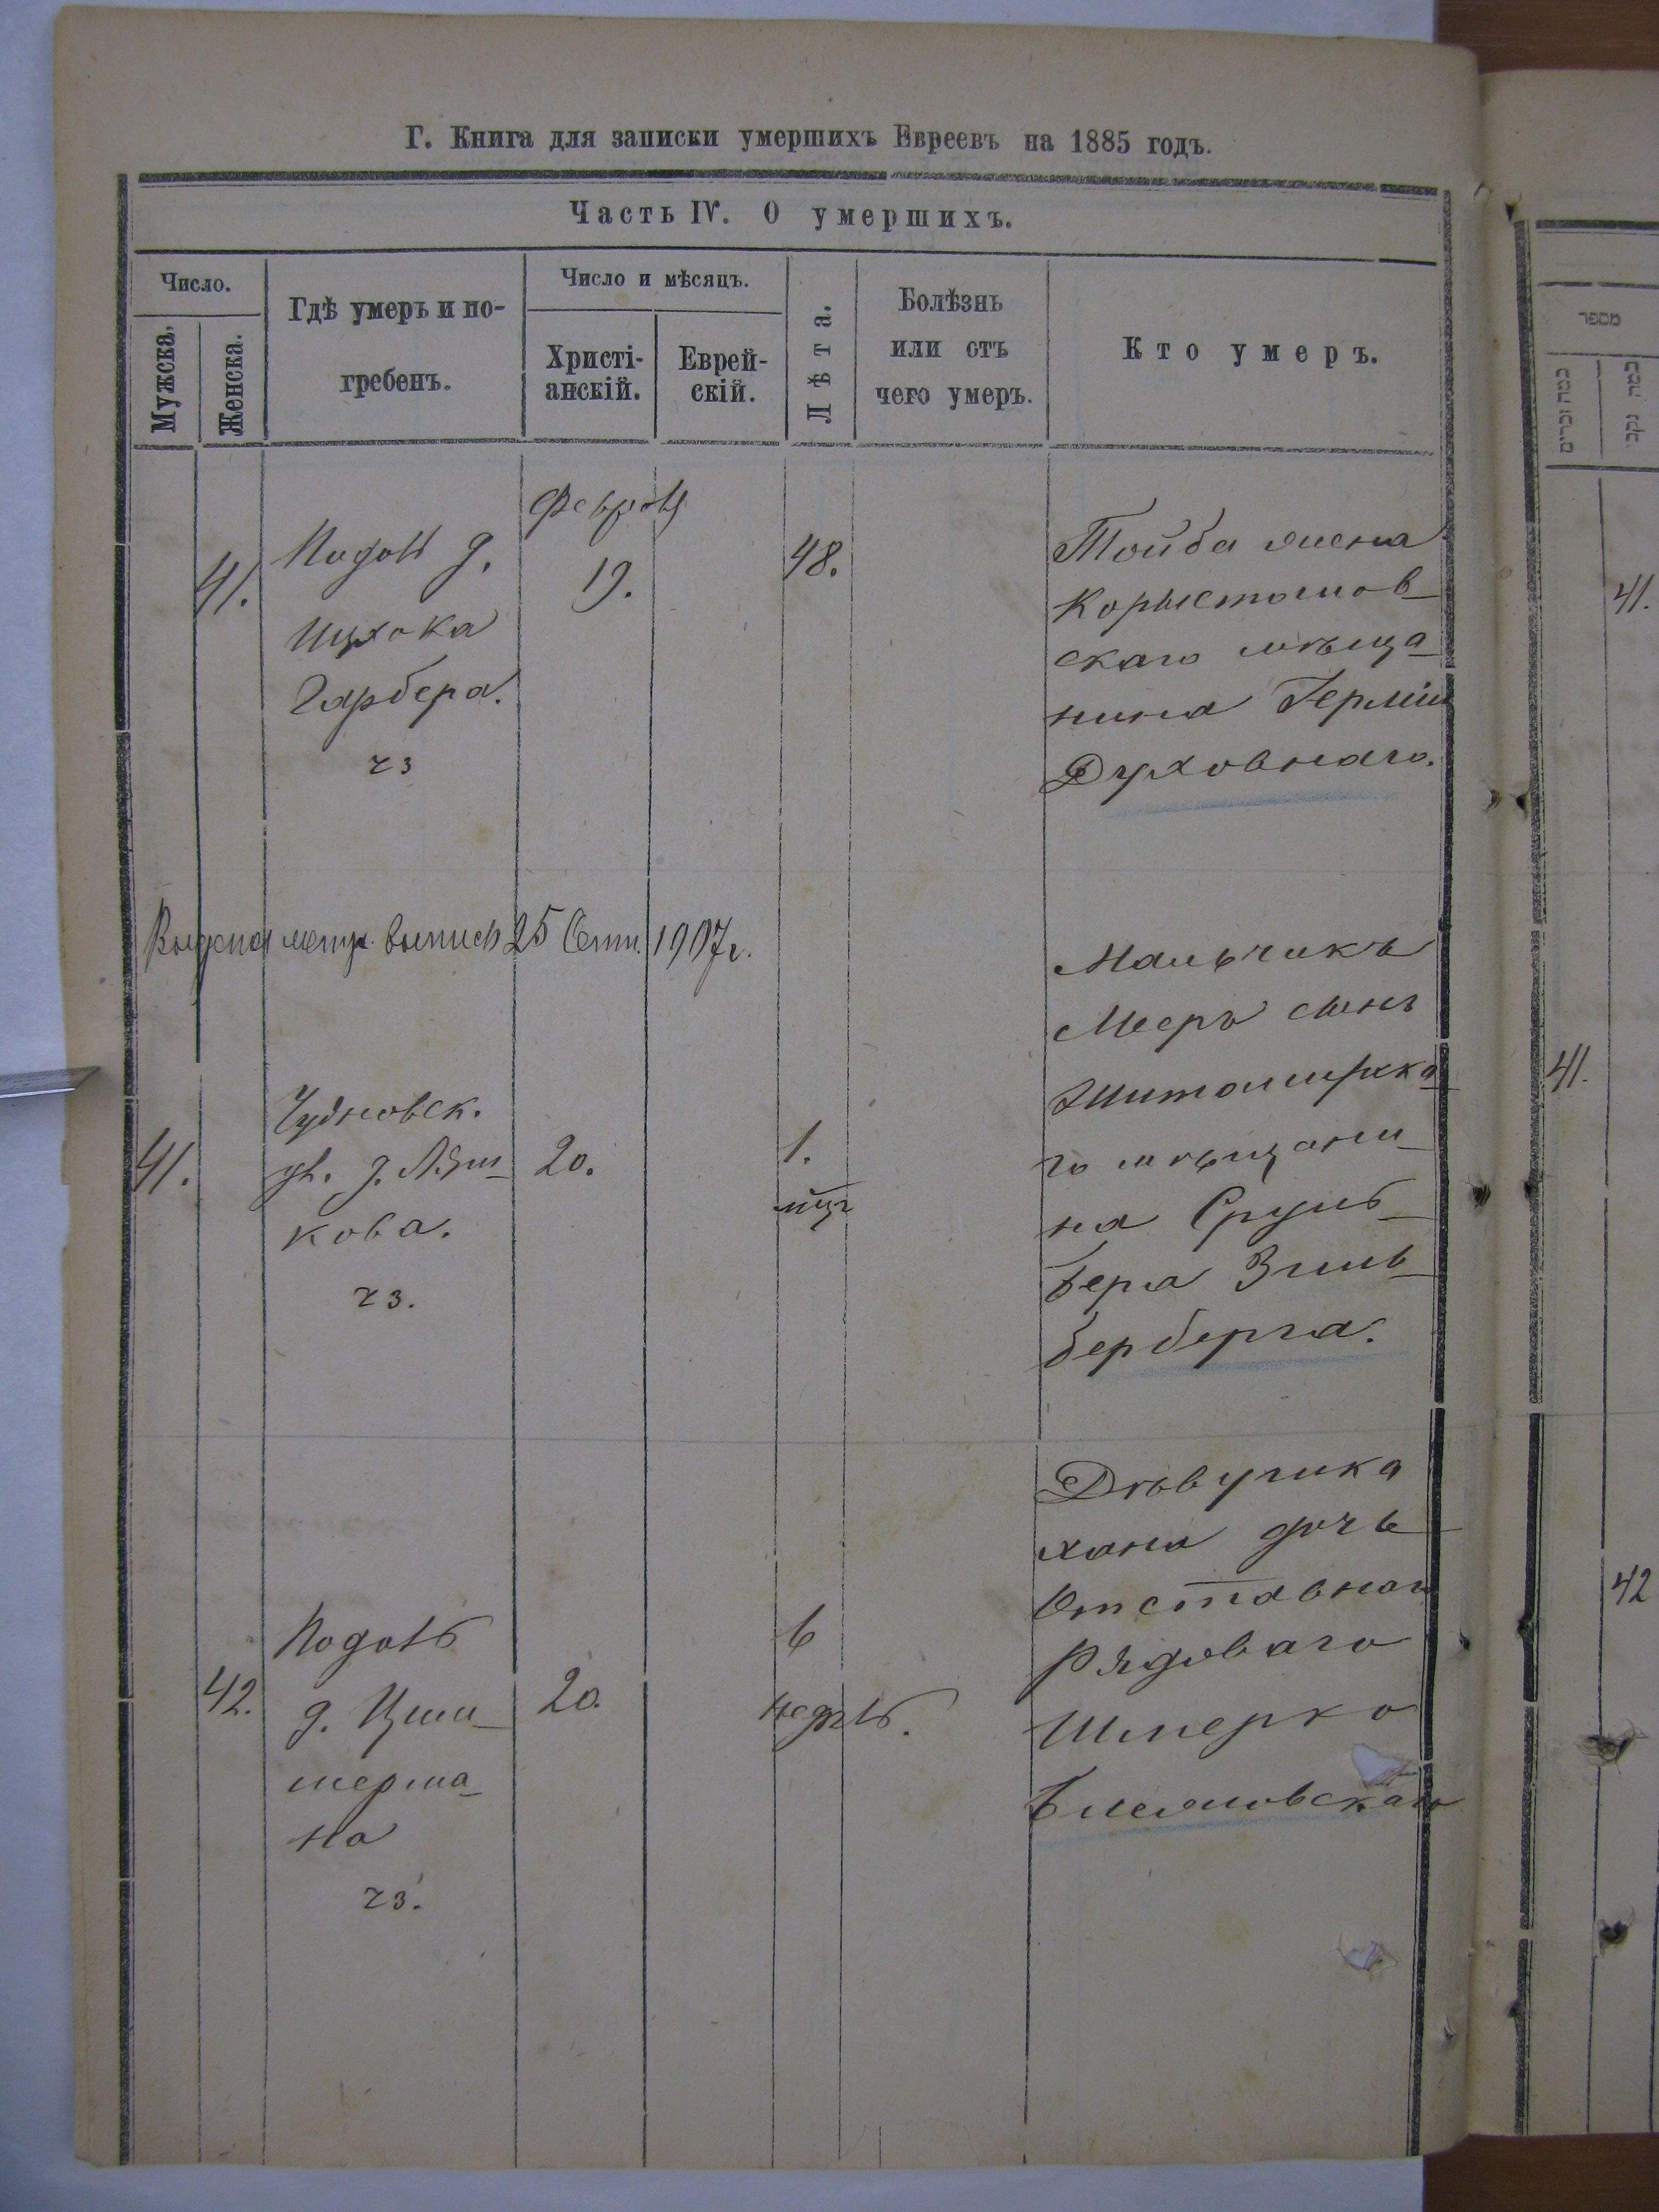 Г. Книга для записки умершихъ Евреевъ на 1885 годъ.
Часть IV. О умершихъ.
Число.
Мужска.
Женска.
Гдѣ умеръ и по-
гребенъ.
Число и мѣсяцъ.
Христі-
анскій.
Еврей-
скій.
Лѣта.
Болѣзнь
или отъ
чего умеръ.
Кто умеръ.
41.
Подолъ д.
Ицхока
Гарбера.
чз
Февраль
19.
48.
Тойба жена
Коростышов-
скаго мѣща-
нина
Духовнаго.
Выдана метр. выпись 25 Сент. 1907 г.
41.
Чудновск.
ул. д.
кова.
чз.
20.
1.
мц
Мальчикъ
Мееръ сынъ
Житомирска
го мѣщани-
на Сруль-
Бера Зиль-
берберга.
42.
Подолъ
д. Цим-
мерма-
на
чз.
20.
6
недѣль.
Дѣвушка
хана дочь
Отставнаго
Рядоваго
Шмерко
מספר
כמה זכרים
41.
41.
42